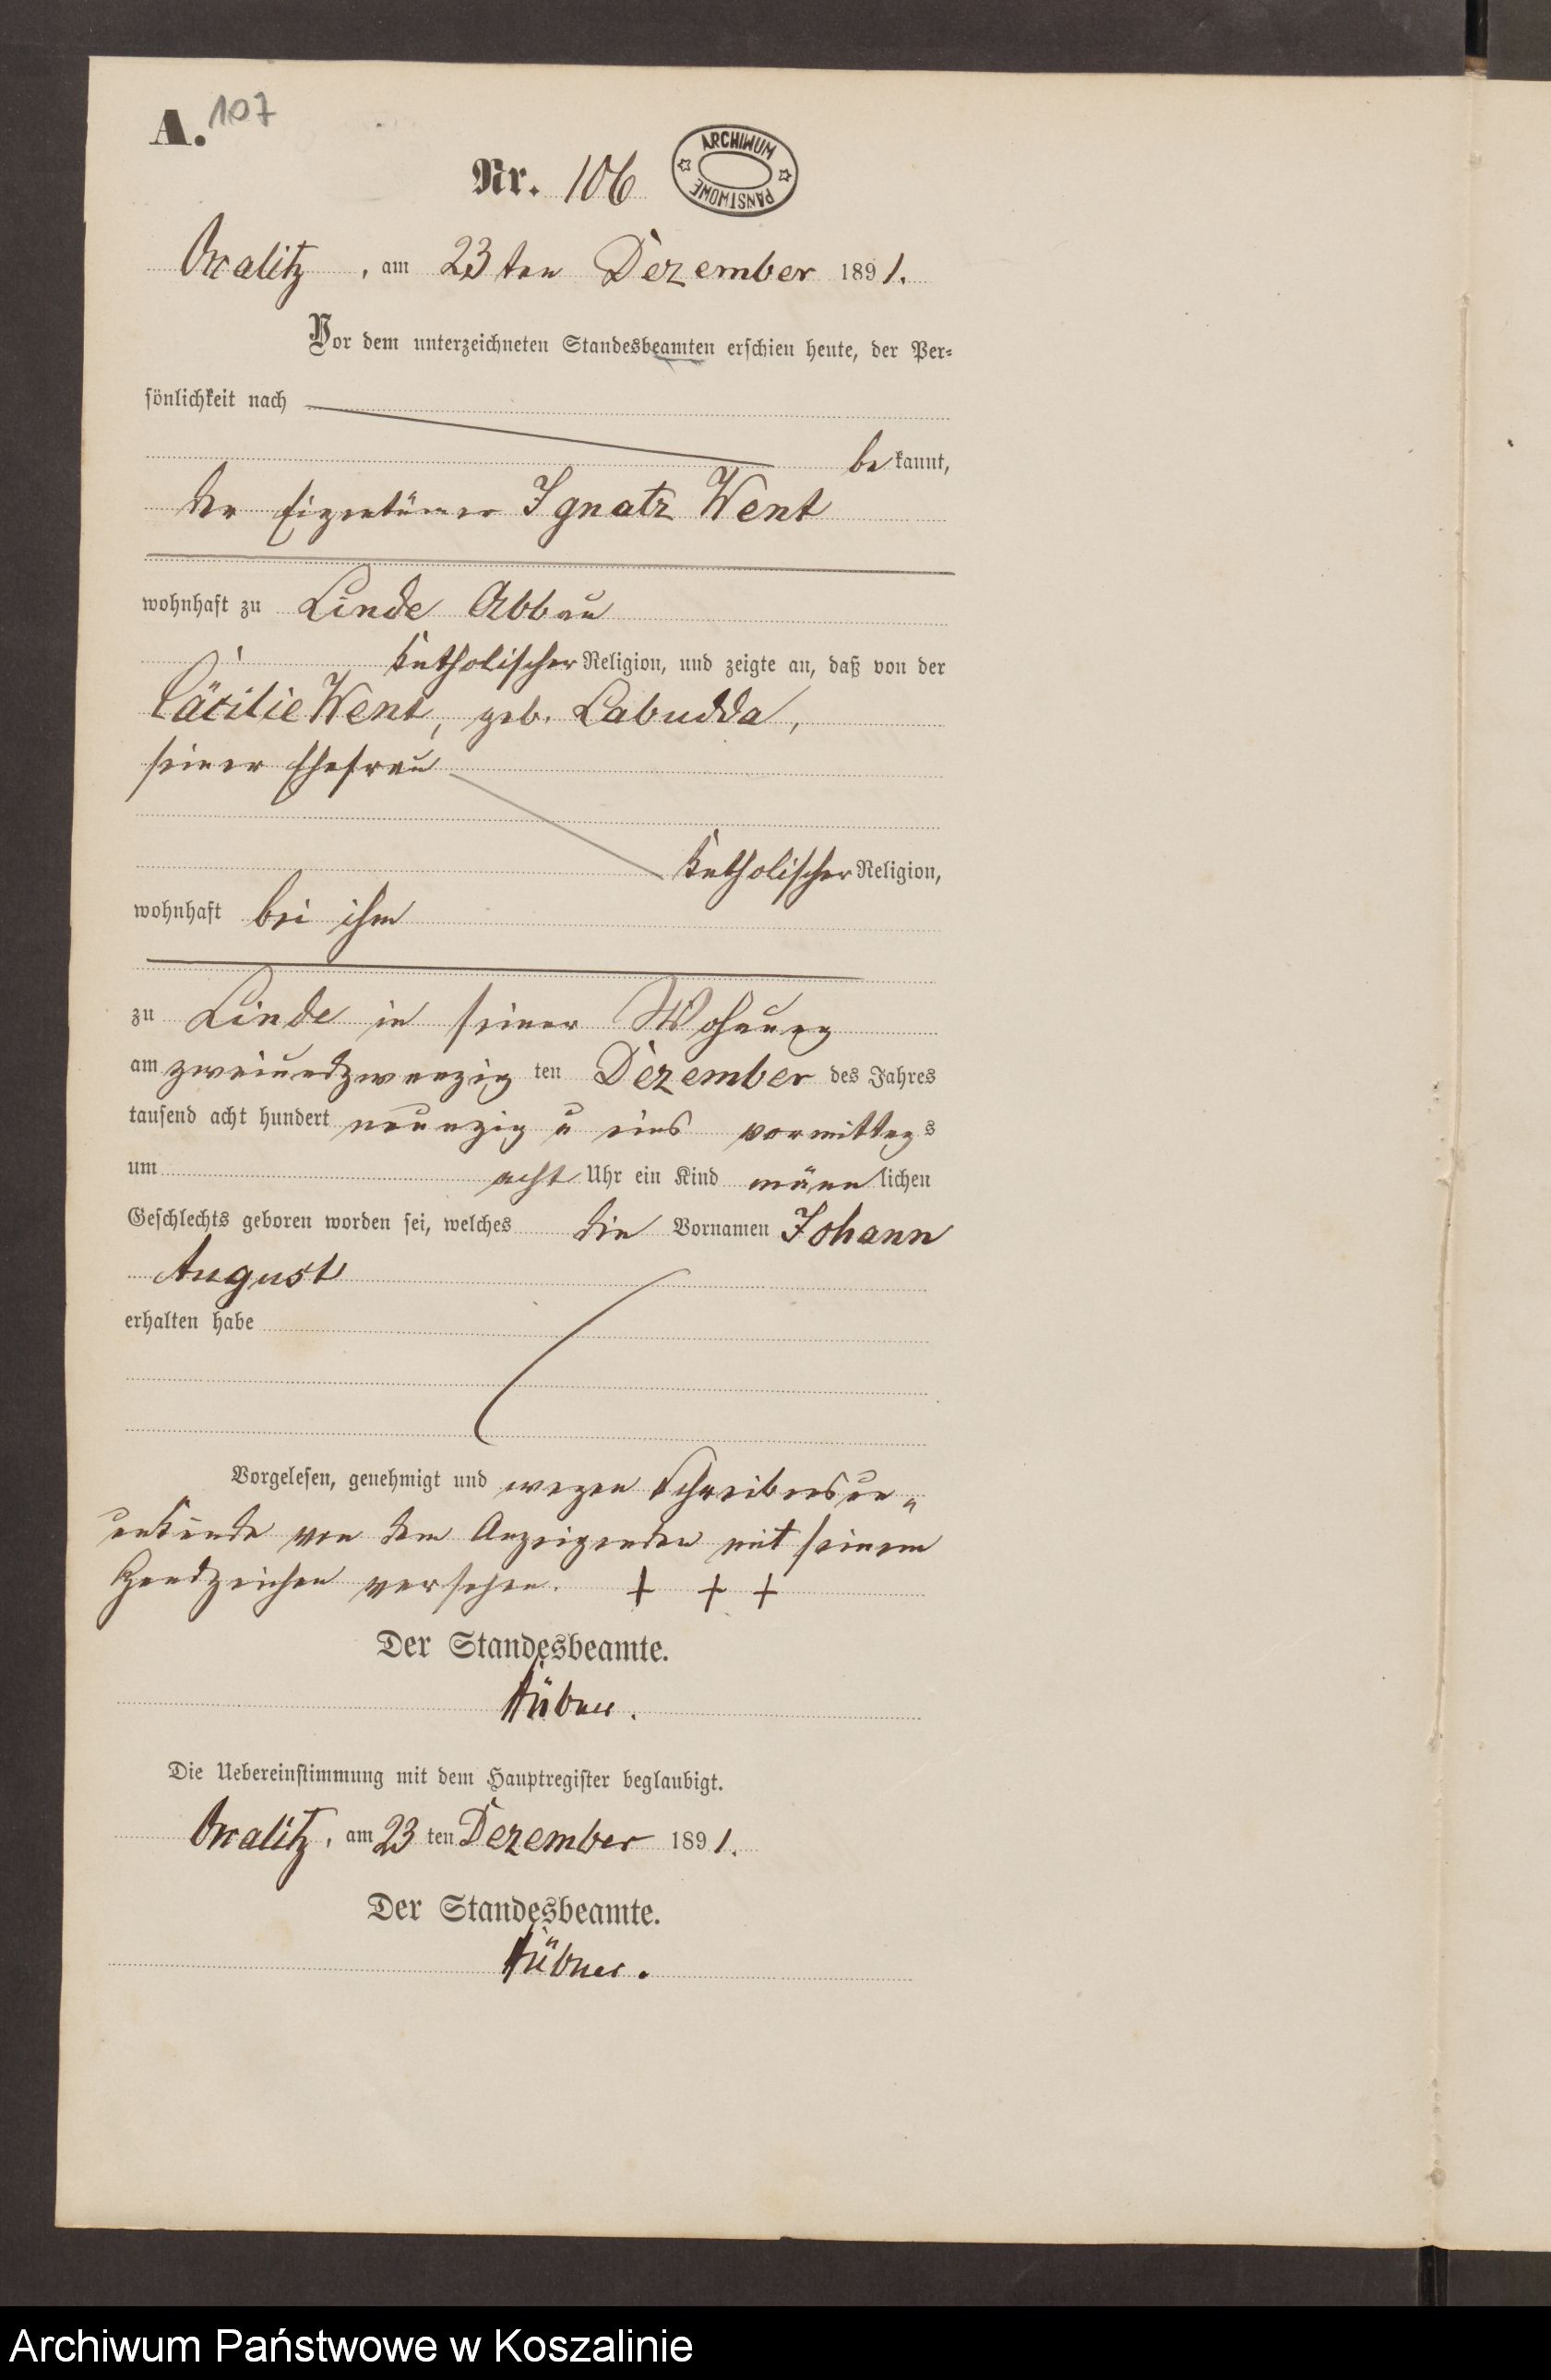 A. 107
Nr. 106
ARCHIWUM PAŃSTWOWE
am 23 ten Dezember 1891.
Vor dem unterzeichneten Standesbeamten erschien heute, der Per-
sönlichkeit nach
be kannt,
der Eigentümer Ignatz Went
wohnhaft zu Linde Abbau
katholischer Religion, und zeigte an, daß von der
Cäcilie Went, geb. Labudda,
seiner Ehefrau
katholischer Religion,
wohnhaft bei ihm
zu Linde in seiner Wohnung
am zweiundzwanzig ten Dezember des Jahres
tausend acht hundert neunzig u eins vormittags
um acht Uhr ein Kind männ lichen
Geschlechts geboren worden sei, welches die Vornamen Johann
August
erhalten habe
Vorgelesen, genehmigt und wegen Schreibens un-
unkunde von dem Anzeigenden mit seinem
Handzeichen versehen. + + +
Der Standesbeamte.
Hübner.
Die Uebereinstimmung mit dem Hauptregister beglaubigt.
am 23 ten Dezember 1891.
Der Standesbeamte.
Hübner.
Archiwum Państwowe w Koszalinie